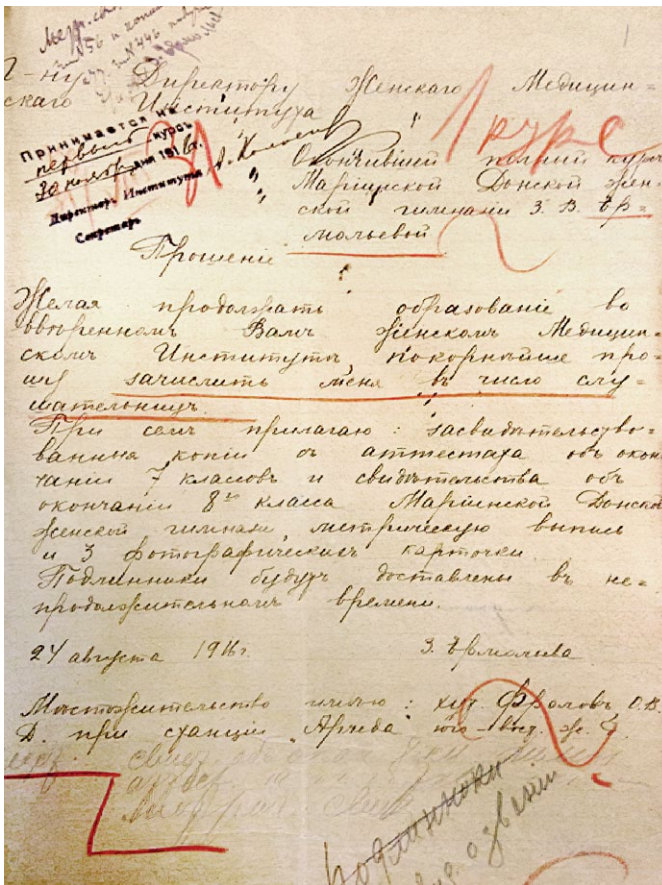 Г-ну Директору Женскаго Медицин-
скаго Института
Принимается на
первый курсъ
30 ноября дня 1916г.
Директоръ Института
Секретарь
1 курс
Окончившей полный курсъ
Маріинской Донской Жен-
ской гимназіи З. В. Ер-
мольевой
Прошеніе
Желая продолжать образованіе во
ввѣренномъ Вамъ Женскомъ Медицин-
скомъ Институтѣ, покорнѣйше про-
шу зачислить меня въ число слу-
шательницъ.
При семъ прилагаю: засвидѣтельство-
ванныя копіи съ аттестата объ окон
чаніи 7 классовъ и свидѣтельства объ
окончаніи 8го класса Маріинской Донской
Женской гимназіи, метрическую выпись
и 3 фотографическія карточки.
Подлинники будутъ доставлены въ не-
продолжительномъ времени.
24 августа 1916г. З. Ермольева
Мѣстожительство имѣю: хут. Фроловъ О.В.
Д. при станціи "Арчеда" юго-вост. ж. д.
подлинники